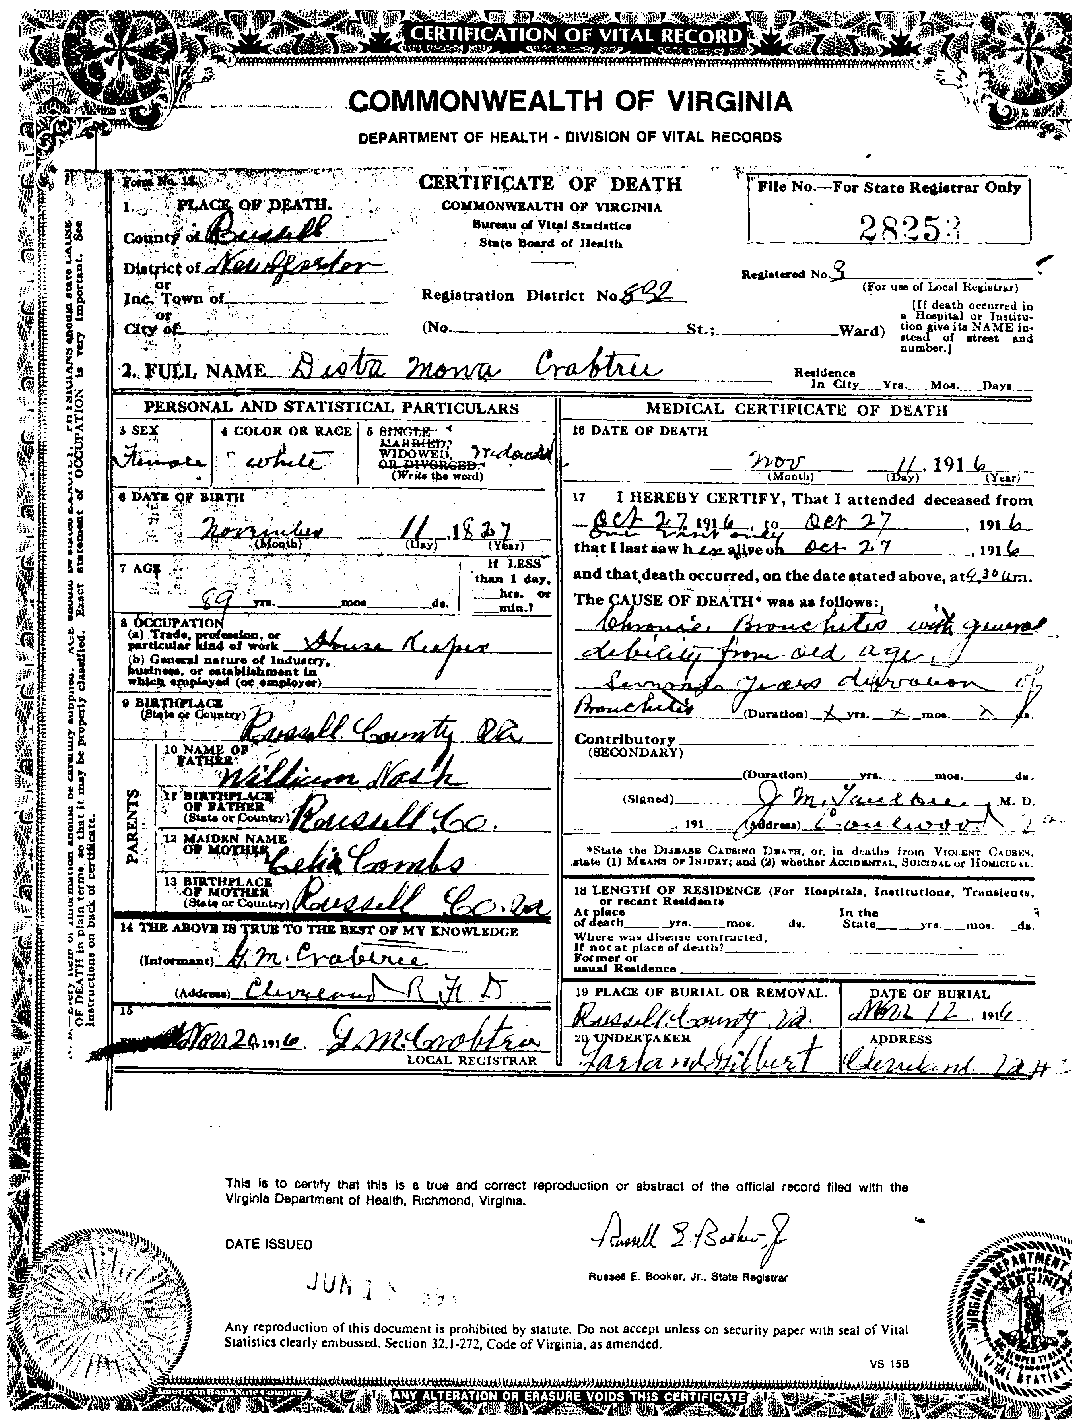 CERTIFICATION OF VITAL RECORD
COMMONWEALTH OF VIRGINIA
DEPARTMENT OF HEALTH - DIVISION OF VITAL RECORDS
Form No. 12.
CERTIFICATE OF DEATH
COMMONWEALTH OF VIRGINIA
Bureau of Vital Statistics
State Board of Health
File No.—For State Registrar Only
28253
1. PLACE OF DEATH.
County of Russell
District of New Garden
or
Inc. Town of
or
City of
Registration District No. 892
Registered No. 3
(For use of Local Registrar)
(No. St.; Ward)
[If death occurred in
a Hospital or Institu-
tion give its NAME in-
stead of street and
number.]
2. FULL NAME Dista Mowa Crabtree
Residence
In City Yrs. Mos. Days
PERSONAL AND STATISTICAL PARTICULARS
3 SEX
Female
4 COLOR OR RACE
white
5 SINGLE
MARRIED,
WIDOWED,
OR DIVORCED.
(Write the word)
Widowed
6 DATE OF BIRTH
November 11 1827
(Month) (Day) (Year)
7 AGE
89 yrs. mos ds.
If LESS
than 1 day,
hrs. or
min.?
8 OCCUPATION
(a) Trade, profession, or
particular kind of work House Keeper
(b) General nature of Industry,
business, or establishment in
which employed (or employer)
9 BIRTHPLACE
(State or Country) Russell County Va
PARENTS
10 NAME OF
FATHER
William Nash
11 BIRTHPLACE
OF FATHER
(State or Country) Russell Co.
12 MAIDEN NAME
OF MOTHER
Celia Combs
13 BIRTHPLACE
OF MOTHER
(State or Country) Russell Co. Va
14 THE ABOVE IS TRUE TO THE BEST OF MY KNOWLEDGE
(Informant) G. M. Crabtree
(Address) Cleveland R F D
15
Nov 20, 1916. G. M. Crabtree
LOCAL REGISTRAR
MEDICAL CERTIFICATE OF DEATH
16 DATE OF DEATH
Nov 11, 1916
(Month) (Day) (Year)
17 I HEREBY CERTIFY, That I attended deceased from
Oct 27 1916, to Oct 27, 1916
One visit only
that I last saw her alive on Oct 27, 1916
and that death occurred, on the date stated above, at 9.30 a m.
The CAUSE OF DEATH* was as follows:
Chronic Bronchitis with general
debility from old age,
Several years duration of
Bronchitis (Duration) x yrs. x mos. x ds.
Contributory
(SECONDARY)
(Duration) yrs. mos. ds.
(Signed) J M. M. D.
191 (Address)
*State the DISEASE CAUSING DEATH, or, in deaths from VIOLENT CAUSES,
state (1) MEANS OF INJURY; and (2) whether ACCIDENTAL, SUICIDAL or HOMICIDAL.
18 LENGTH OF RESIDENCE (For Hospitals, Institutions, Transients,
or recent Residents
At place
of death yrs. mos. ds.
In the
State yrs. mos. ds.
Where was disease contracted,
If not at place of death?
Former or
usual Residence
19 PLACE OF BURIAL OR REMOVAL.
Russell County Va.
DATE OF BURIAL
Nov 12 1916
20 UNDERTAKER
Garland Gilbert
ADDRESS
Cleveland Va
This is to certify that this is a true and correct reproduction or abstract of the official record filed with the
Virginia Department of Health, Richmond, Virginia.
DATE ISSUED
JUN
Russell E. Booker, Jr
Russell E. Booker, Jr., State Registrar
Any reproduction of this document is prohibited by statute. Do not accept unless on security paper with seal of Vital
Statistics clearly embossed. Section 32.1-272, Code of Virginia, as amended.
VS 15B
ANY ALTERATION OR ERASURE VOIDS THIS CERTIFICATE